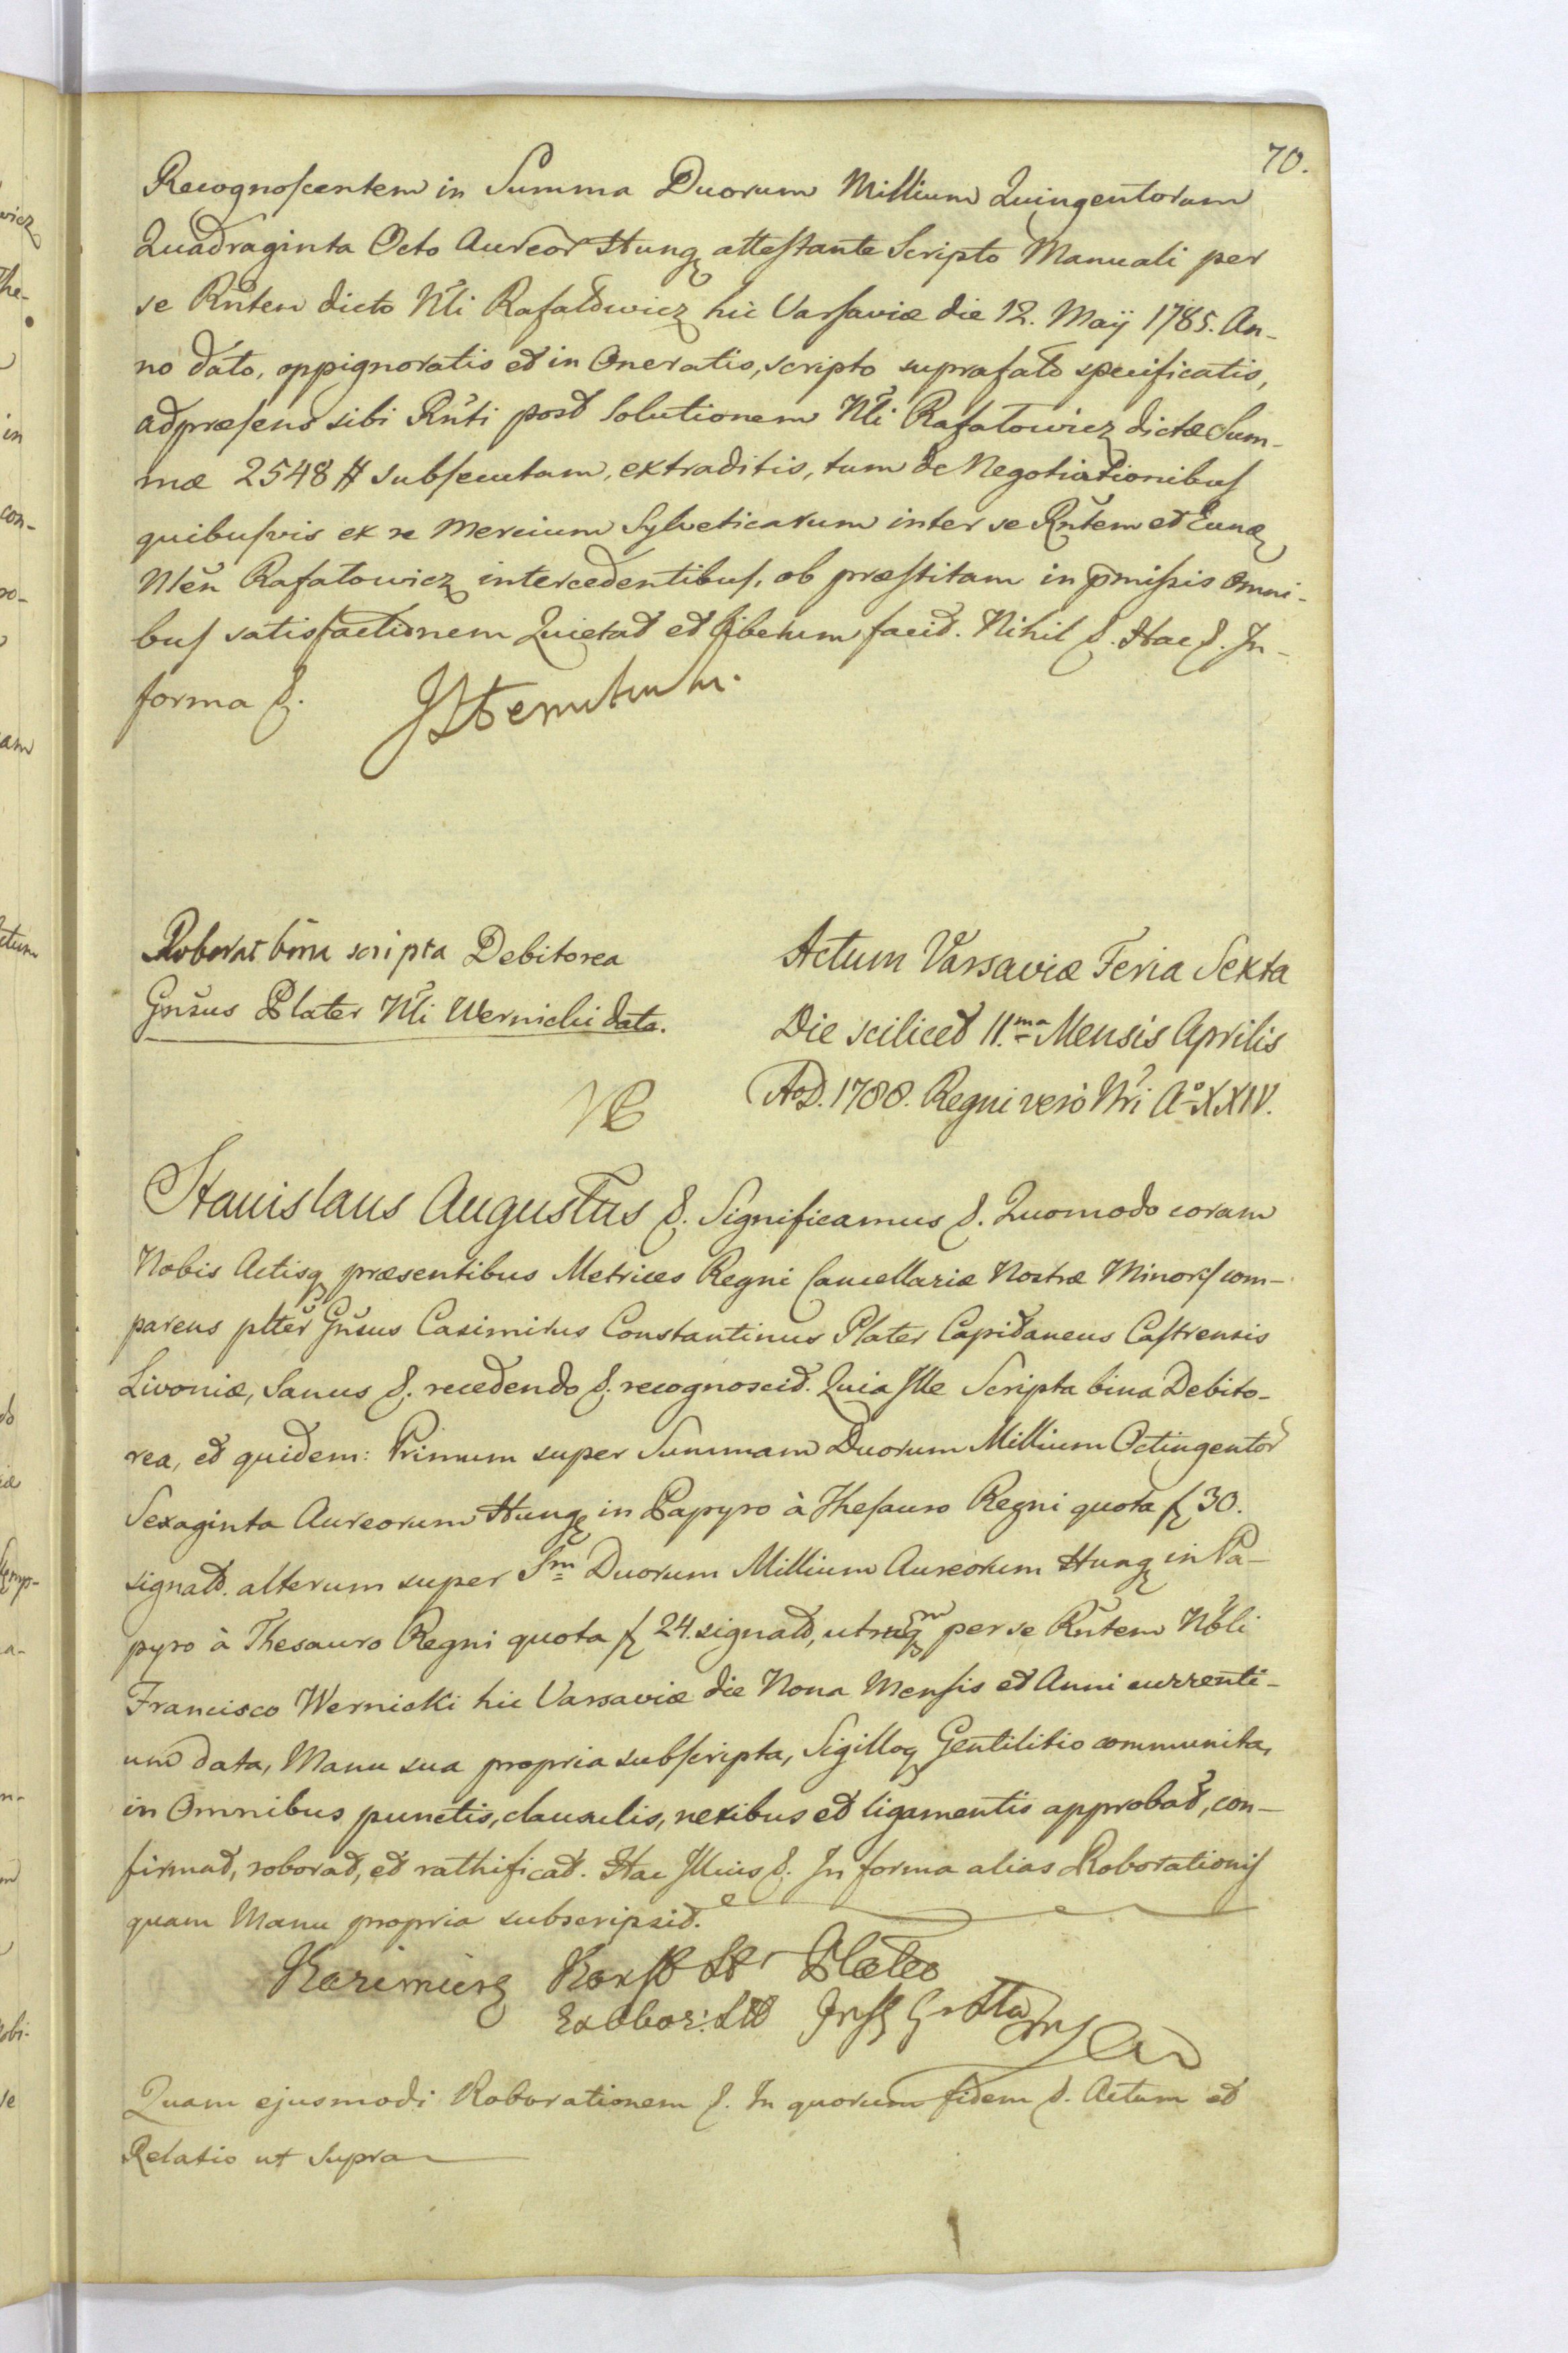 70.
Recognoscentem in Summa Duorum Millium Quingentorum
Quadraginta Octo Aureor Hung attestante Scripto Manuali per
se Rntem dicto Nli Rafałowicz hic Varsaviæ die 12. Maÿ 1785. An-
no dato, oppignoratis et in Oneratis, scripto suprafato specificatis,
ad præsens sibi Rnti post Solutionem Nli Rafałowicz dictæ Sum-
mæ 2548 # subsecutam, extraditis, tum de Negotiationibus
quibusvis ex re Mercium Sylveticarum inter se Rntem et Eund
Nlen Rafałowicz intercedentibus, ob præstitam in pmissis Omni-
bus satisfactionem Quietat et liberum facit. Nihil &. Hac &. In-
forma &.
Roborat bina scripta Debitorea
Gnsus Plater Nli Wernicki data.
Actum Varsaviæ Feria Sexta
Die scilicet 11.ma Mensis Aprilis
AoD. 1788. Regni verò Nri Aº XXIV.
Stanislaus Augustus &. Significamus &. Quomodo coram
Nobis Actisq præsentibus Metrices Regni Cancellariæ Nostræ Minoris com-
parens plter Gnsus Casimirus Constantinus Plater Capitaneus Castrensis
Livoniæ, Sanus &. recedendo &. recognoscit. Quia Ille Scripta bina Debito-
rea, et quidem: Primum super Summam Duorum Millium Octingentor
Sexaginta Aureorum Hung in Papyro à Thesauro Regni quota f 30.
signat. alterum super Sm Duorum Millium Aureorum Hung in Pa-
pyro à Thesauro Regni quota f 24. signat, utrumq per se Rntem Nbli
Francisco Wernicki hic Varsaviæ die Nona Mensis et Anni currenti-
um data, Manu sua propria subscripta, Sigilloq Gentilitio communita,
in Omnibus punctis, clausulis, nexibus et ligamentis approbat, con-
firmat, roborat, et rathificat. Hac Illius &. In forma alias Roborationis
quam Manu propria subscripsit.
Kazimierz Konst Plater
Quam ejusmodi Roborationem &. In quorum fidem &. Actum et
Relatio ut Supra